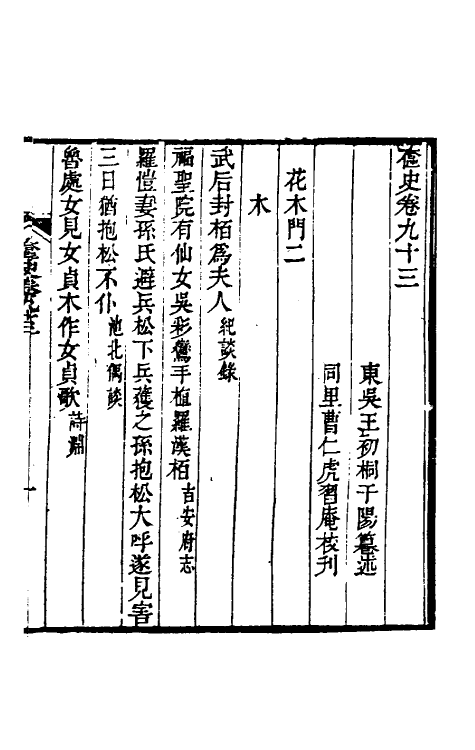 奩史卷九十三
東吳王初桐于陽纂述
同里曹仁虎習庵校刋
花木門二
木
武后封柏爲夫人紀談錄
福聖院有仙女吳彩鸞手植羅漢柏吉安府志
羅愷妻孫氏避兵松下兵獲之孫抱松大呼遂見害
三日猶抱松不仆池北偶談
魯處女見女貞木作女貞歌詩淵
奩史卷九十三
一